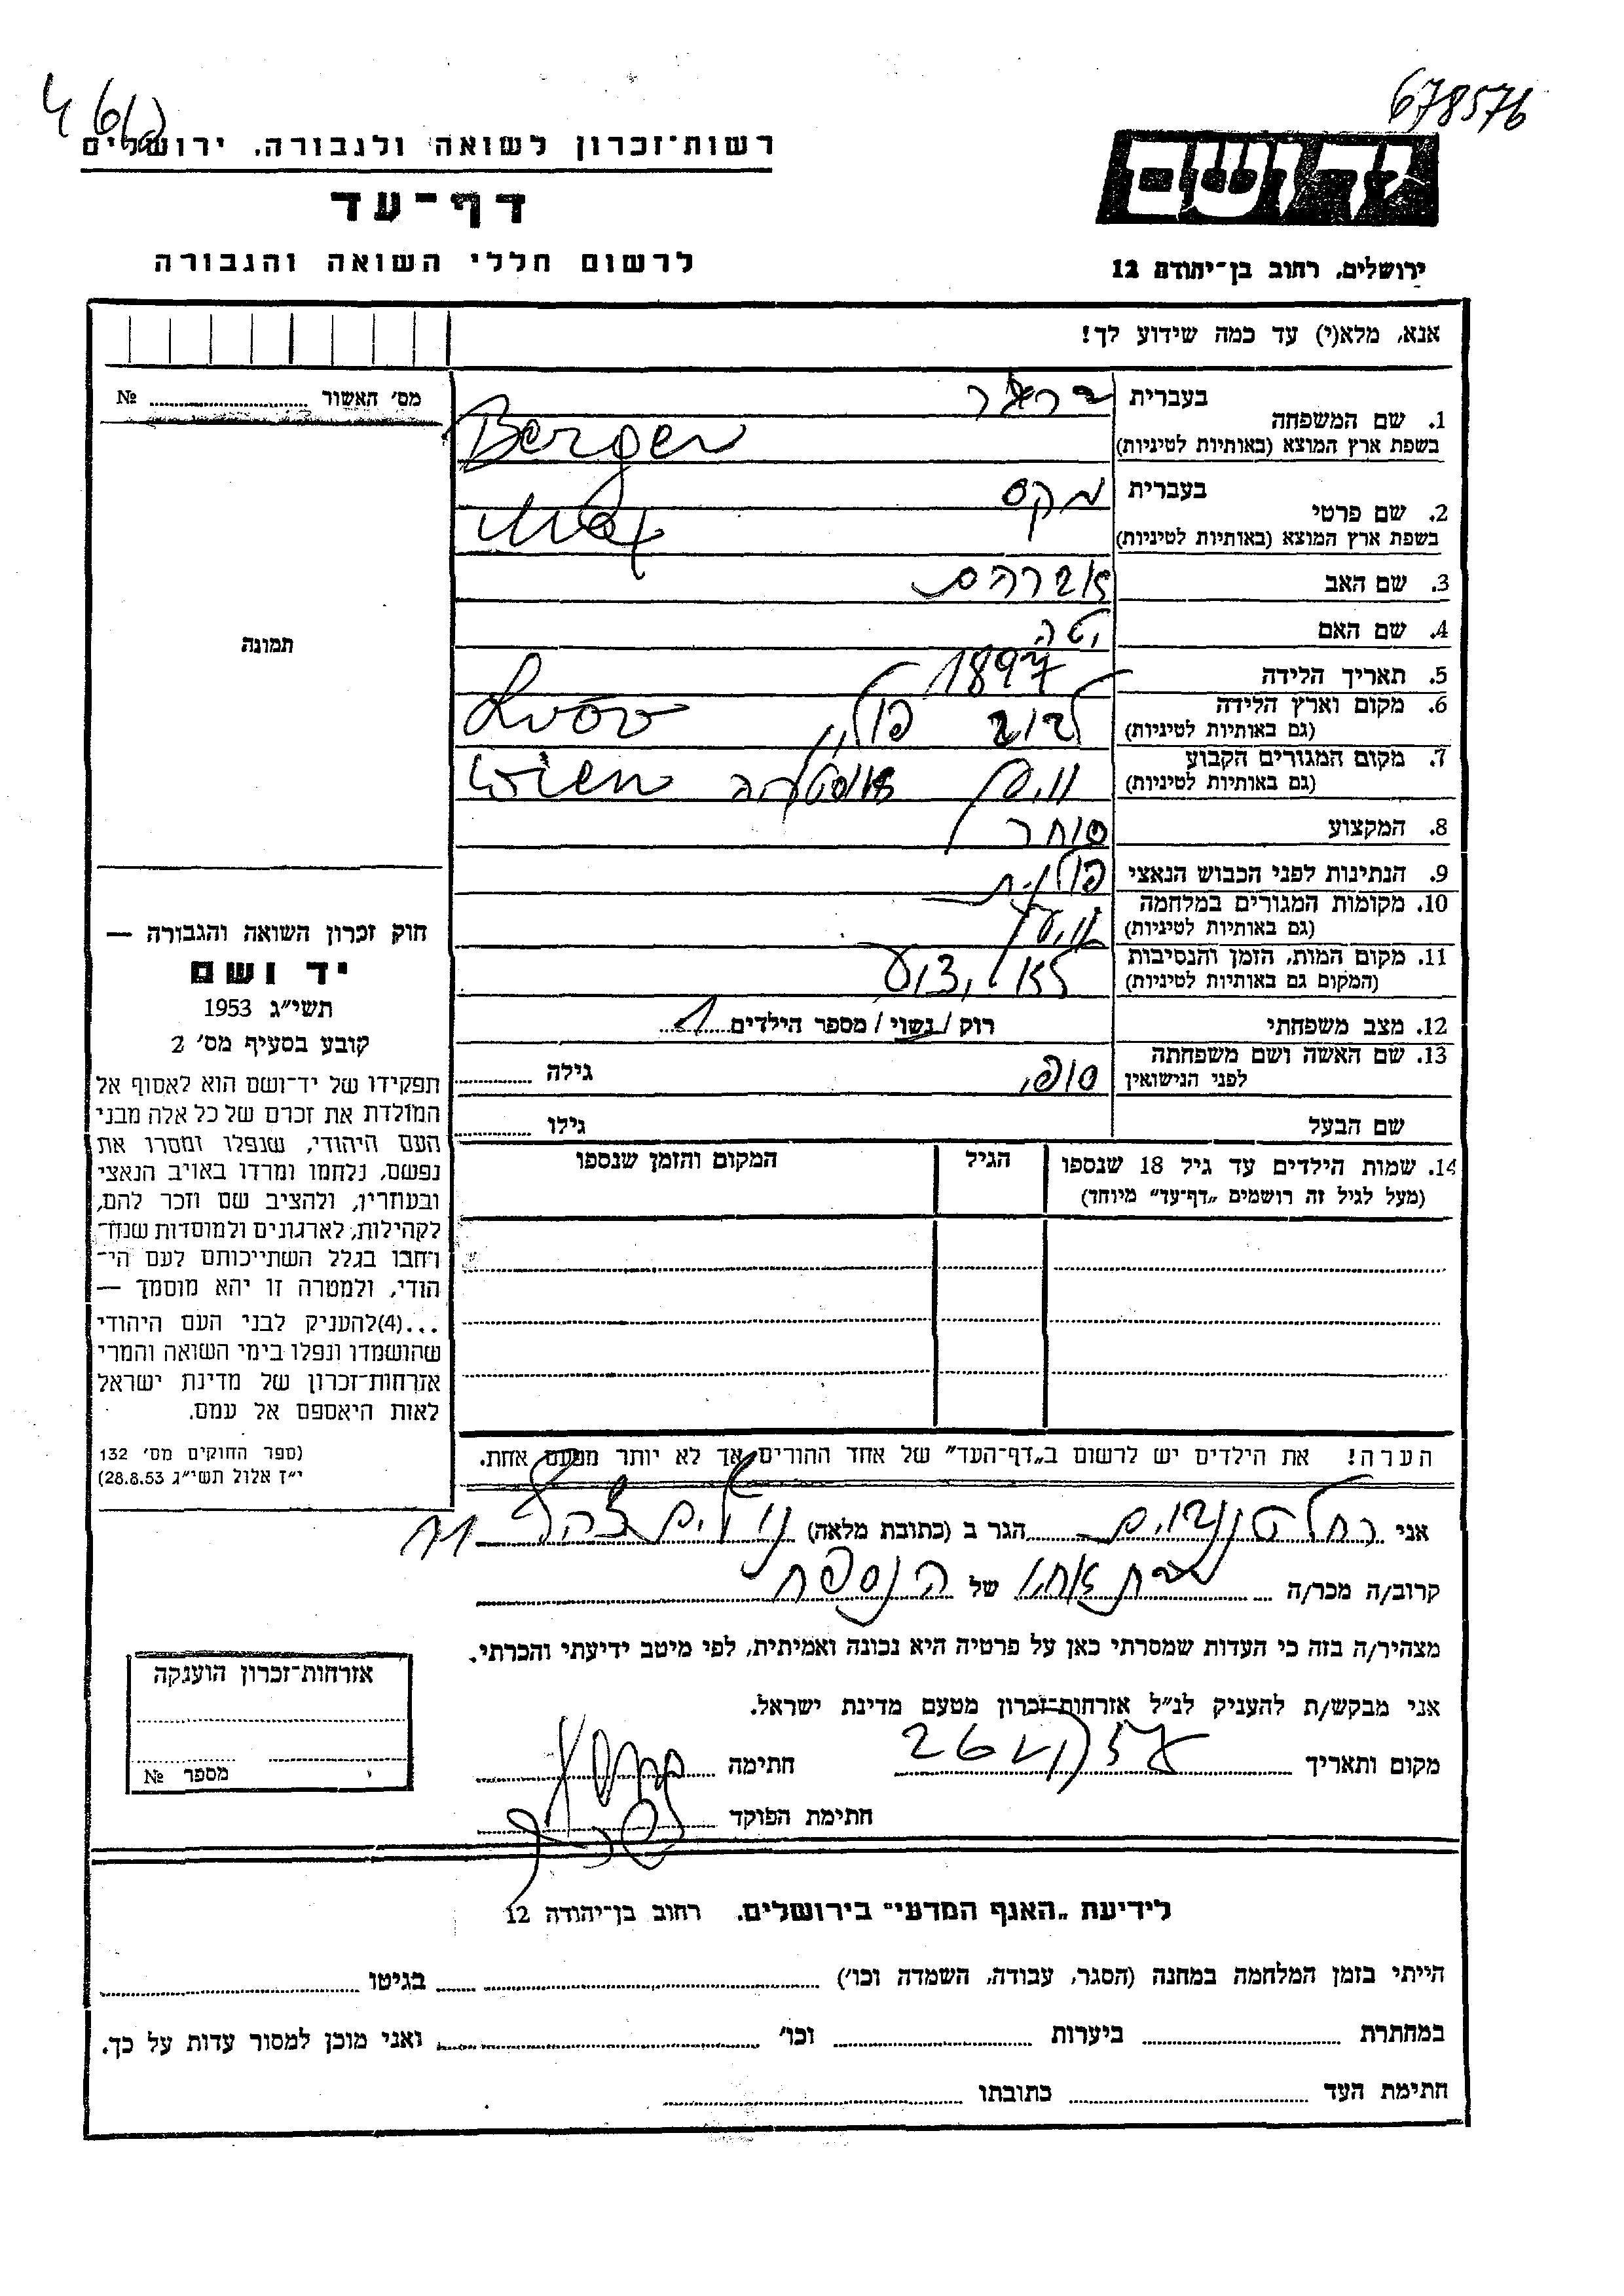 678576
רשות־זכרון לשואה ולגבורה. ירושלים
דף־עד
לרשום חללי השואה והגבורה
יד ושם
ירושלים, רחוב בן־יהודה 12
אנא, מלא(י) עד כמה שידוע לך!
מס׳ האשור № 
1. שם המשפחה
בעברית
ברגר
בשפת ארץ המוצא (באותיות לטיניות)
Berger
2. שם פרטי
בעברית
מקס
בשפת ארץ המוצא (באותיות לטיניות)
Max
3. שם האב
אברהם
4. שם האם
יטה
5. תאריך הלידה
1897
6. מקום וארץ הלידה
(גם באותיות לטיניות)
לבוב פולין Lvov
7. מקום המגורים הקבוע
(גם באותיות לטיניות)
וינה אוסטריה Wien
8. המקצוע
סוחר
9. הנתינות לפני הכבוש הנאצי
פולנית
10. מקומות המגורים במלחמה
(גם באותיות לטיניות)
11. מקום המות, הזמן והנסיבות
(המקום גם באותיות לטיניות)
לא ידוע
12. מצב משפחתי
רוק / נשוי / מספר הילדים 1
13. שם האשה ושם משפחתה
לפני הנישואין
סופי
גילה
שם הבעל
גילו
14. שמות הילדים עד גיל 18 שנספו
(מעל לגיל זה רושמים „דף־עד״ מיוחד)
הגיל
המקום והזמן שנספו
תמונה
חוק זכרון השואה והגבורה —
יד ושם
תשי״ג 1953
קובע בסעיף מס׳ 2
תפקידו של יד־ושם הוא לאסוף אל
המולדת את זכרם של כל אלה מבני
העם היהודי, שנפלו ומסרו את
נפשם, נלחמו ומרדו באויב הנאצי
ובעוזריו, ולהציב שם וזכר להם,
לקהילות, לארגונים ולמוסדות שנח־
רבו בגלל השתייכותם לעם הי־
הודי, ולמטרה זו יהא מוסמך —
...(4)להעניק לבני העם היהודי
שהושמדו ונפלו בימי השואה והמרי
אזרחות־זכרון של מדינת ישראל
לאות היאספם אל עמם.
(ספר החוקים מס׳ 132
י״ז אלול תשי״ג 28.8.53)
הערה! את הילדים יש לרשום ב„דף־העד״ של אחד ההורים אך לא יותר מפעם אחת.
אני רחל הגר ב (כתובת מלאה) 11
קרוב/ה מכר/ה בת אחיו של הנספה
מצהיר/ה בזה כי העדות שמסרתי כאן על פרטיה היא נכונה ואמיתית, לפי מיטב ידיעתי והכרתי.
אני מבקש/ת להעניק לנ״ל אזרחות־זכרון מטעם מדינת ישראל.
מקום ותאריך
חתימה
חתימת הפוקד
אזרחות־זכרון הוענקה
מספר №
לידיעת „האגף המדעי״ בירושלים. רחוב בן־יהודה 12
הייתי בזמן המלחמה במחנה (הסגר, עבודה, השמדה וכו׳) בגיטו
במחתרת ביערות וכו׳ ואני מוכן למסור עדות על כך.
חתימת העד כתובתו